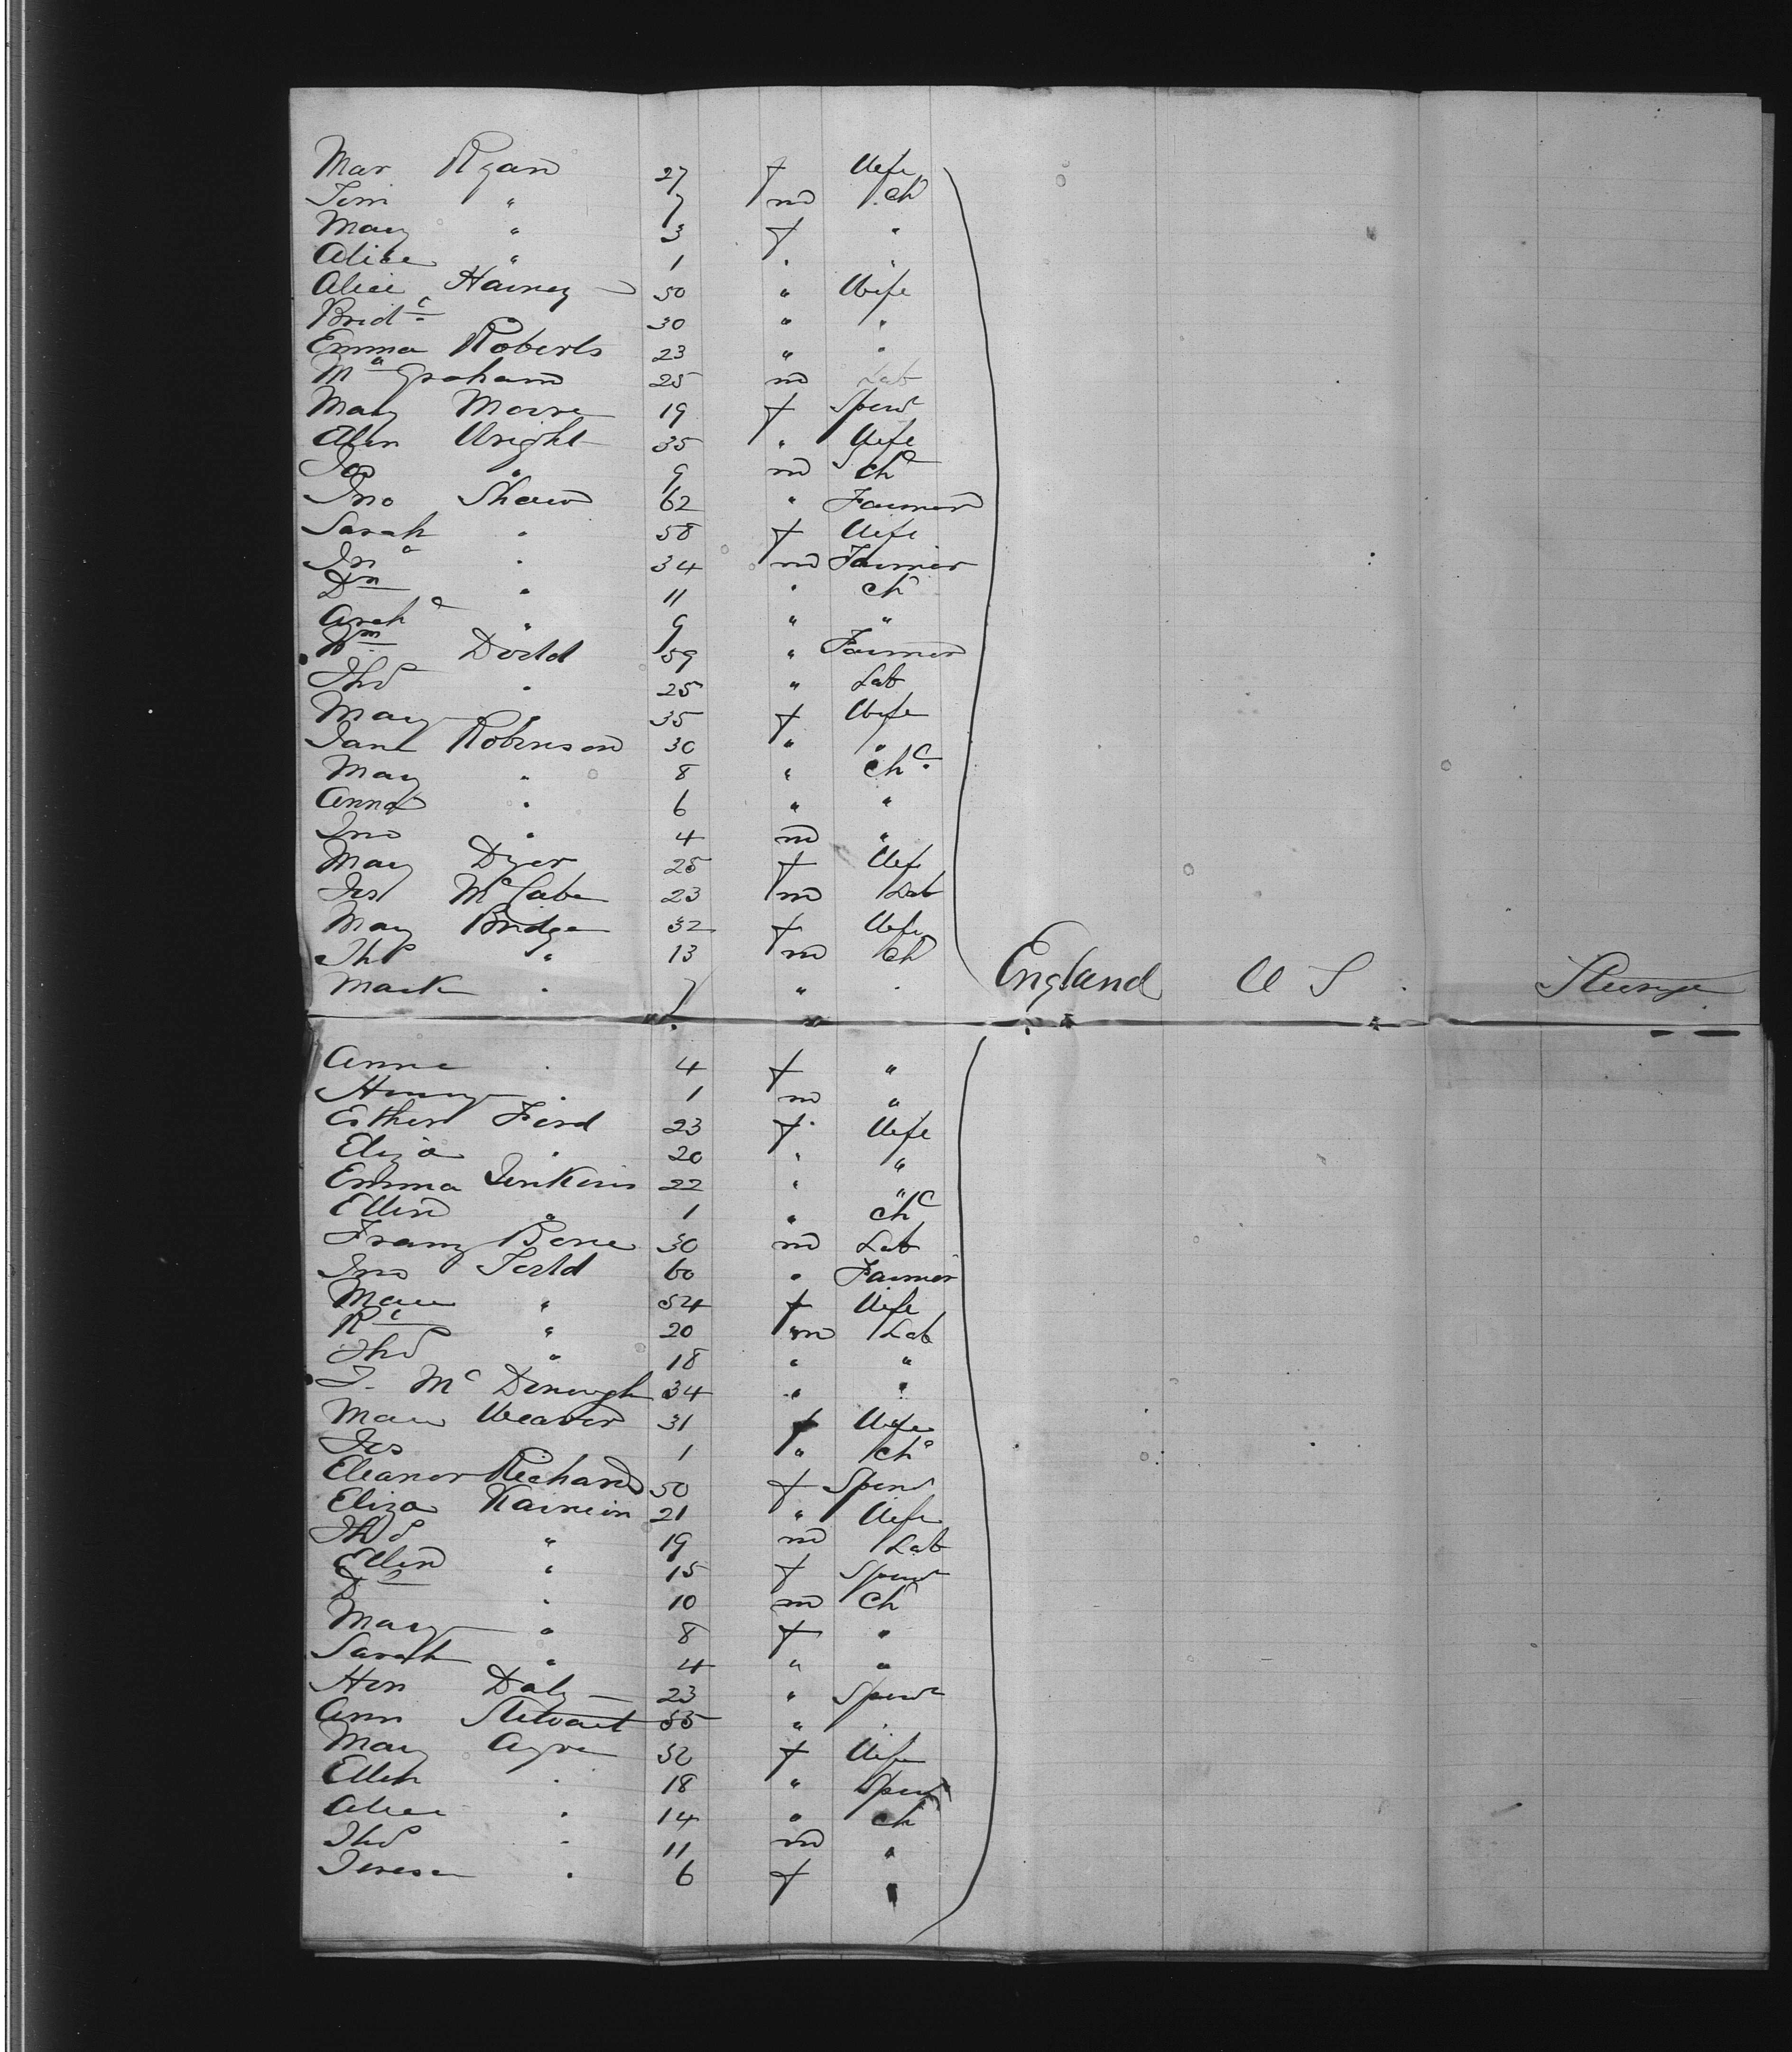 Mar Ryan 27 f Wife
Tim " 7 m Ch
Mary " 3 f "
Alice " 1 " "
Alice Harney 50 " Wife
Bridt 30 " "
Emma Roberts 23 " "
Ma Graham 25 m Lab
Mary Moore 19 f Spinr
Ellen Wright 35 " Wife
Jas " 9 m Chd
Jno Shaw 62 " Farmer
Sarah " 58 f Wife
Jno " 34 m Farmer
" 11 " Ch
Arch " 9 " "
Wm Dodd 59 " Farmer
Thos " 25 " Lab
Mary " 35 f Wife
Jane Robinson 30 " "
Mary " 8 " Chd
Anna " 6 " "
Jno " 4 m "
Mary Dyer 25 f Wife
Jas McCabe 23 m Lab
Mary Bridge 32 f Wife
Thos " 13 m Ch
Mark " 7 " " England U S Steerage
Anne " 4 f "
Henry " 1 m "
Esther Ford 23 f Wife
Eliza " 20 " "
Emma Jenkins 22 " "
Ellen " 1 " Chd
Franz 30 m Lab
Jno Todd 60 " Farmer
Mary " 54 f Wife
Rd " 20 m Lab
Thos " 18 " "
T. McDonough 34 " "
Mary Weaver 31 f Wife
Jas 1 " Chd
Eleanor Richard 50 f Spinr
Eliza 21 " Wife
Thos " 19 m Lab
Ellen " 15 f Spinr
" 10 m Ch
Mary " 8 f "
Sarah " 4 " "
Hon Daly 23 " Spinr
Ann Stewart 55 " "
Mary Ayre 52 f Wife
Ellen " 18 " Spinr
Alice " 14 " Ch
Thos " 11 m "
Teresa " 6 f "